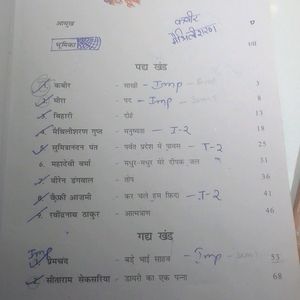 कबीर
आमुख v
मैथिलीशरण
भूमिका vii
पद्य खंड
1. कबीर - साखी - Imp 3
2. मीरा - पद - Imp 8
3. बिहारी - दोहे 13
4. मैथिलीशरण गुप्त - मनुष्यता - I-2 18
5. सुमित्रानंदन पंत - पर्वत प्रदेश में पावस - I-2 25
6. महादेवी वर्मा - मधुर-मधुर मेरे दीपक जल 31
7. वीरेन डंगवाल - तोप 36
8. कैफ़ी आज़मी - कर चले हम फ़िदा - I-2 41
9. रवींद्रनाथ ठाकुर - आत्मत्राण 46
गद्य खंड
Imp
प्रेमचंद - बड़े भाई साहब - Imp 53
सीताराम सेकसरिया - डायरी का एक पन्ना 68